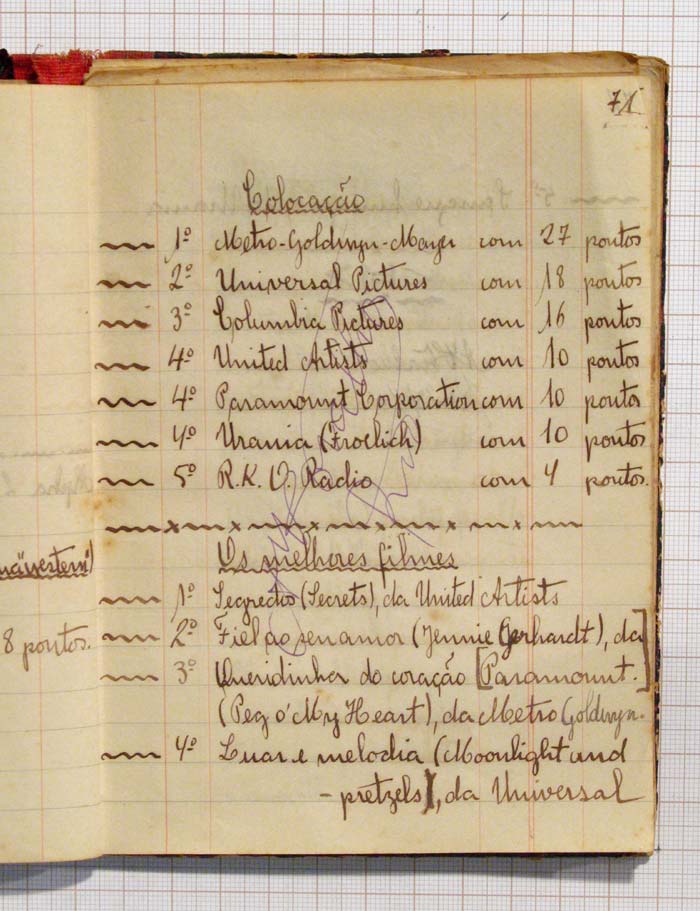 71
Colocação
1º Metro-Goldwyn-Mayer com 27 pontos
2º Universal Pictures com 18 pontos
3º Columbia Pictures com 16 pontos
4º United Artists com 10 pontos
4º Paramount Corporation com 10 pontos
4º Urania (Froelich) com 10 pontos
5º R.K.O. Radio com 4 pontos.
Os melhores filmes
1º Segredos (Secrets), da United Artists
2º Fiel ao seu amor (Jennie Gerhardt), da
3º Queridinha do coração [Paramount.]
(Peg o' My Heart), da Metro Goldwyn.
4º Luar e melodia (Moonlight and
- pretzels), da Universal
8 pontos.